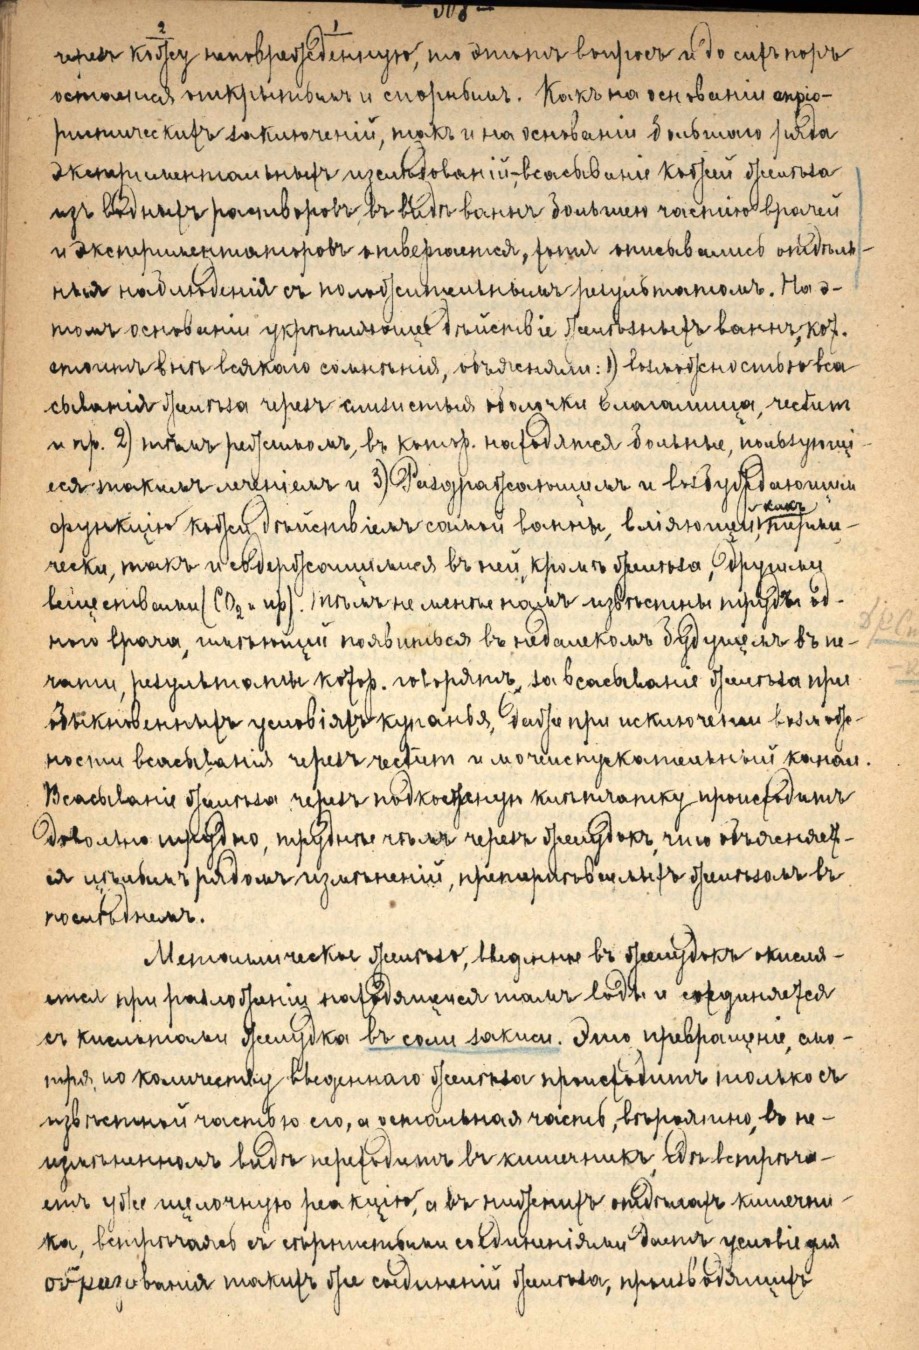 — 308 —
2 1
черезъ кожу неповрежденную, то этотъ вопросъ и до сихъ поръ
остается открытымъ и спорнымъ. Какъ на основаніи апріо-
ристическихъ заключеній, такъ и на основаніи большого ряда
экспериментальныхъ изслѣдованій, всасываніе кожей желѣза
изъ водныхъ растворовъ въ видѣ ваннъ большею частію врачей
и экспериментаторовъ отвергается, хотя описывались отдѣль-
ныя наблюденія съ положительнымъ результатомъ. На э-
томъ основаніи укрѣпляющее дѣйствіе желѣзныхъ ваннъ, кот.
стоитъ внѣ всякаго сомнѣнія, объясняли: 1) возможностью вса
сыванія желѣза черезъ слизистыя оболочки влагалища, rectum
и пр. 2) тѣмъ режимомъ, въ котор. находятся больные, пользующі-
еся такимъ леченіемъ и 3) Раздражающимъ и возбуждающимъ
функцію кожи дѣйствіемъ самой ванны, вліяющей, какъ терми-
чески, такъ и содержащимися въ ней, кромѣ желѣза, другими
веществами (CO2 и пр). Тѣмъ не менѣе намъ извѣстны труды од-
ного врача, имѣющій появиться въ недалекомъ будущемъ въ пе-
чати, результаты котор. говорятъ за всасываніе желѣза при
обыкновенныхъ условіяхъ купанья, даже при исключеніи возмож-
ности всасыванія черезъ rectum и мочеиспускательный канал.
Всасываніе желѣза черезъ подкожную клѣтчатку происходитъ
довольно трудно, труднѣе чѣмъ черезъ желудокъ, что объясняет-
ся цѣлымъ рядомъ измѣненій, претерпѣваемыхъ желѣзомъ въ
послѣднемъ.
Металлическое желѣзо, введенное въ желудокъ окисля-
ется при разложеніи находящейся тамъ воды и соединяется
съ кислотами желудка въ соли закиси. Это превращеніе, смо-
тря по количеству введеннаго желѣза происходитъ только съ
извѣстной частью его, а остальная часть, вѣроятно, въ не-
измѣненномъ видѣ переходитъ въ кишечникъ, гдѣ встрѣча-
етъ уже щелочную реакцію, а въ нижнихъ отдѣлахъ кишечни-
ка, встрѣчаясь съ сѣрнистыми соединеніями даетъ условіе для
образованія такихъ же соединеній желѣза, производящихъ